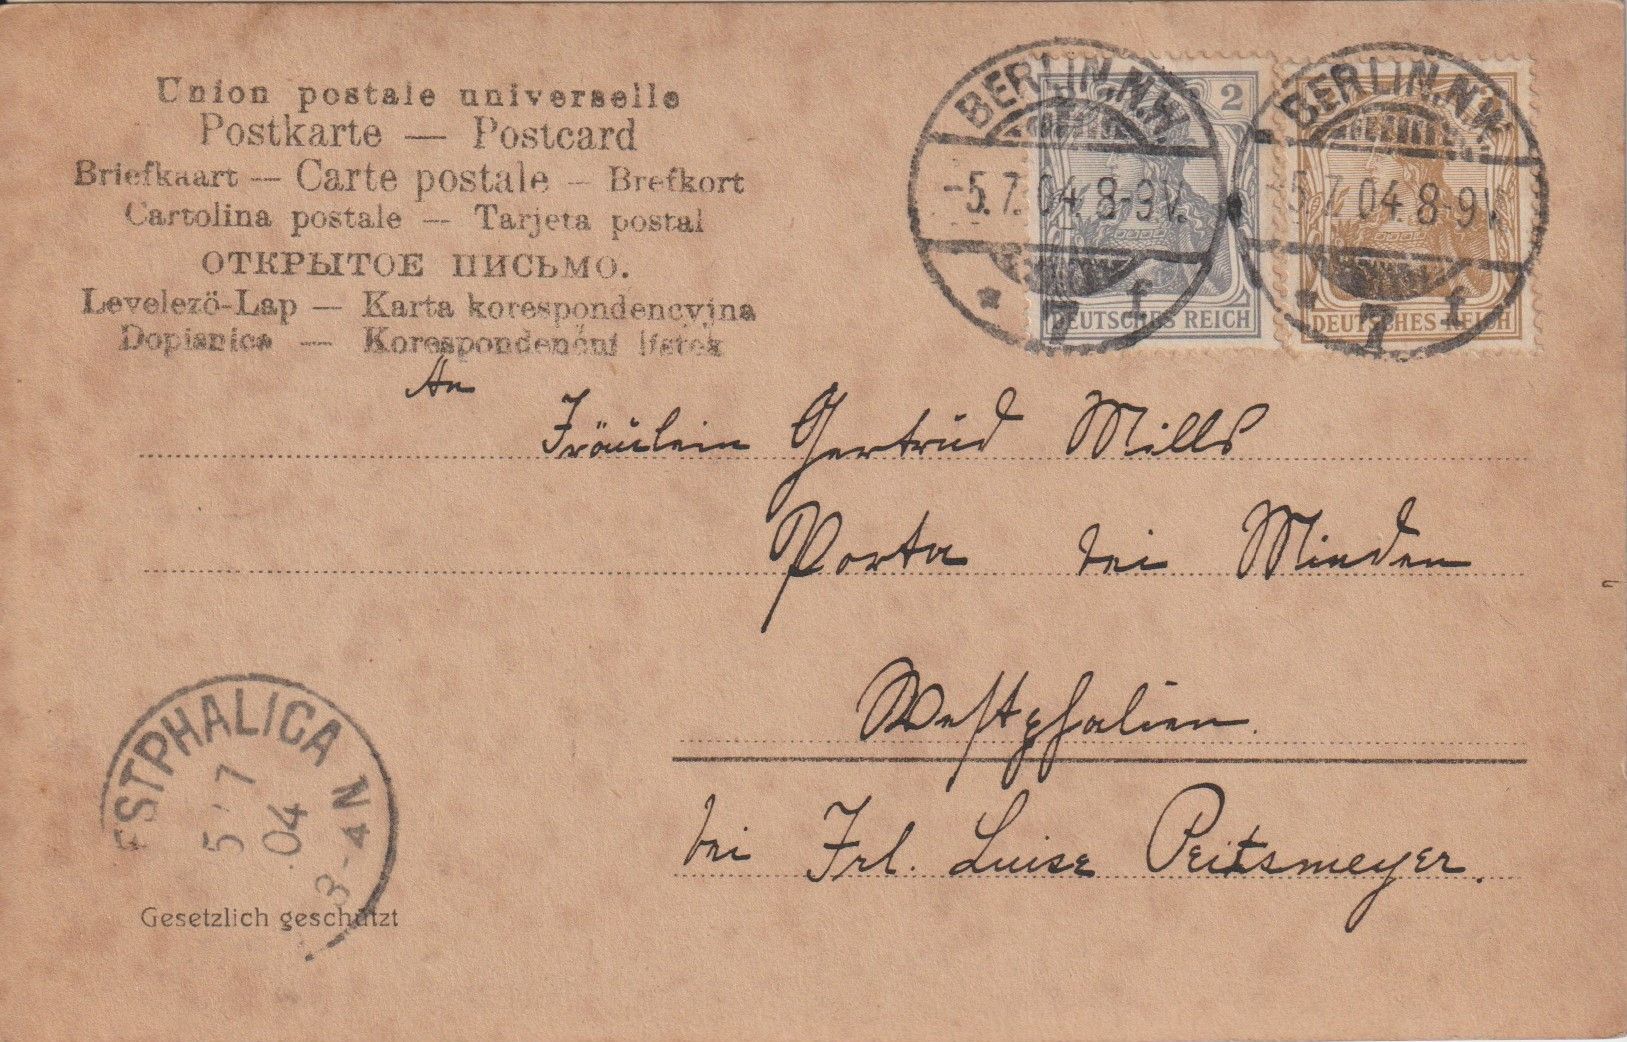 Union postale universelle
Postkarte — Postcard
Briefkaart — Carte postale — Brefkort
Cartolina postale — Tarjeta postal
ОТКРЫТОЕ ПИСЬМО.
Levelező-Lap — Karta korespondencyjna
Dopisnica — Korespondenční lístek
BERLIN, N.W.
-5.7.04. 8-9V.
* 7 f
2
DEUTSCHES REICH
BERLIN, N.W.
5.7.04. 8-9V.
* 7 f
3
DEUTSCHES REICH
An
Fräulein Gertrud Mills
Porta bei Minden
Westphalien.
bei Frl. Luise Peitsmeyer.
ESTPHALICA
5.7
04
3-4 N
Gesetzlich geschützt